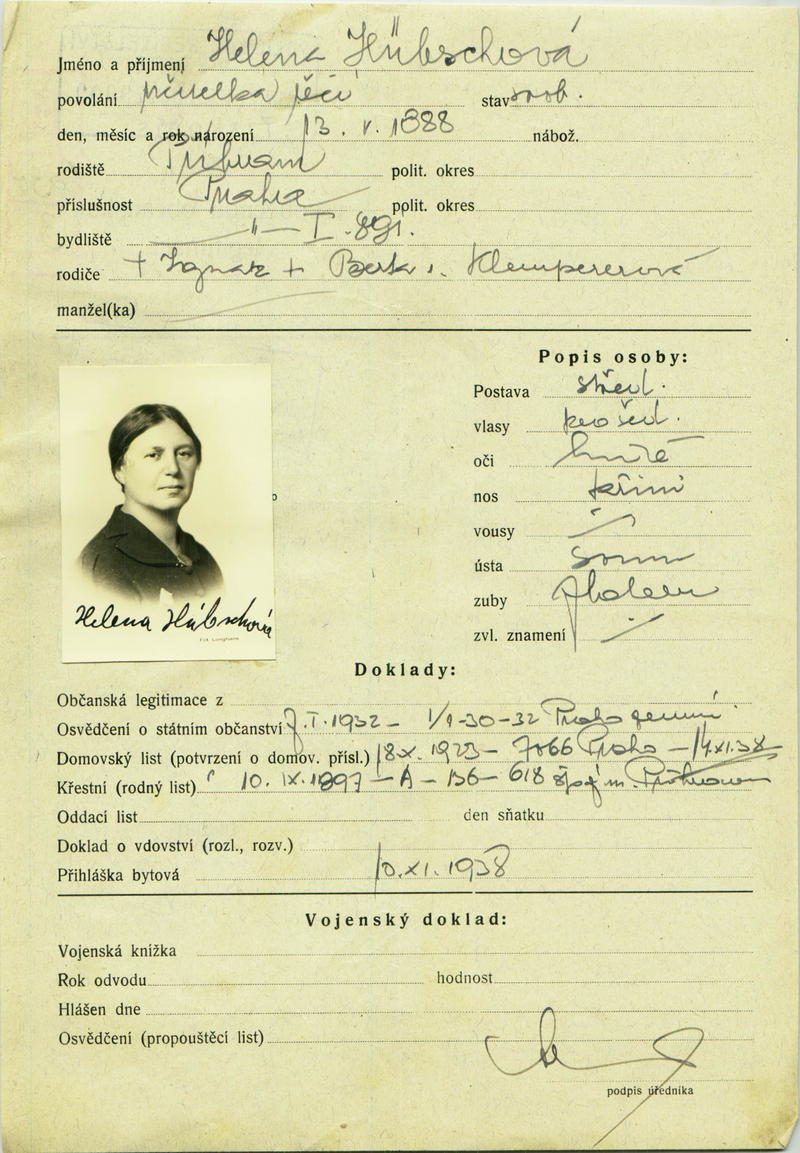 Jméno a příjmení Helena Hübschová
povolání učitelka řečí stav svob.
den, měsíc a rok nárození 13. V. 1888 nábož.
rodiště Příbram polit. okres
příslušnost Praha pplit. okres
bydliště " — I. 891.
rodiče + Ignaz + Berta r. Klempererová
manžel(ka)
Popis osoby:
Postava střed.
vlasy prošed.
oči hnědé
nos přím
vousy
ústa
zuby
zvl. znamení
Helena Hübschová
Doklady:
Občanská legitimace z
Osvědčení o státním občanství 7. I. 1932 – 1/1-30-32 Praha
Domovský list (potvrzení o domov. přísl.) 18. X. 1923 – 7066 Praha – 14. XI. 38
Křestní (rodný list) 10. IX. 1897 – A – 136 – 618 Příbram
Oddací list den sňatku
Doklad o vdovství (rozl., rozv.)
Přihláška bytová 10. XI. 1938
Vojenský doklad:
Vojenská knížka
Rok odvodu hodnost
Hlášen dne
Osvědčení (propouštěcí list)
podpis úředníka